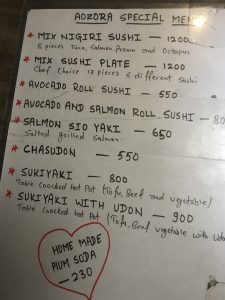 AOZORA SPECIAL MEN
* MIX NIGIRI SUSHI — 1200
8 pieces Tuna, Salmon Prawn and Octopus
* MIX SUSHI PLATE — 1200
Chef Choice 12 pieces 5 different Sushi
* AVOCADO ROLL SUSHI — 550
* AVOCADO AND SALMON ROLL SUSHI — 80
* SALMON SIO YAKI — 650
Salted grilled Salmon.
* CHASUDON — 550
* SUKIYAKI — 800
Table coocked hot Pot (Tofu, Beef and vegetable)
* SUKIYAKI WITH UDON — 900
Table coocked hot Pot (Tofu, Beef vegetable with Udo
HOME MADE
PLUM SODA
— 230